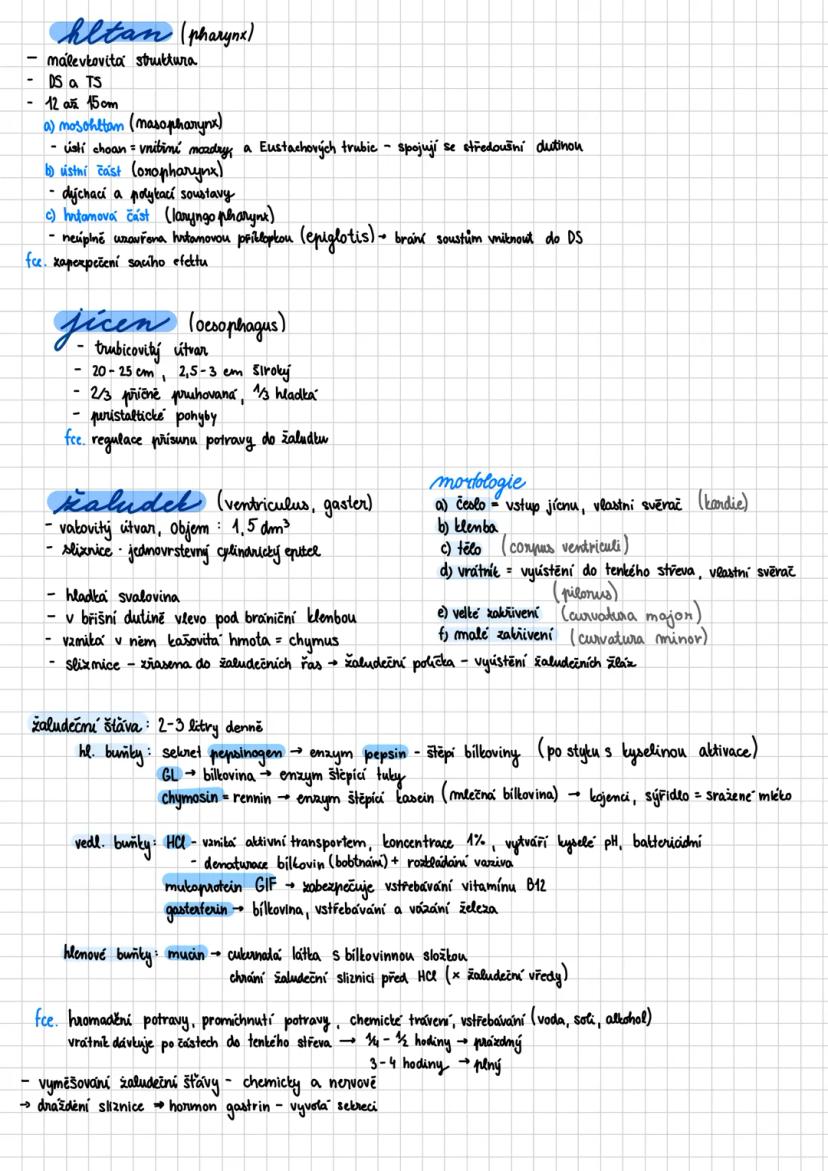 hltan (pharynx)
– málevkovitá struktura
- DS a TS
- 12 až 15cm
a) nosohltan (nasopharynx)
- ústí choan = vnitřní nozdry, a Eustachových trubic – spojují se středoušní dutinou
b) ústní část (oropharynx)
- dýchací a polykací soustavy
c) hrtanová část (laryngopharynx)
- neúplně uzavřena hrtanovou příklopkou (epiglotis) → brání soustům vniknout do DS
fce. zapezpečení sacího efektu
jícen (oesophagus)
- trubicovitý útvar
- 20 - 25 cm, 2,5 - 3 cm široký
- 2/3 příčně pruhovaná, 1/3 hladká
- peristaltické pohyby
fce. regulace přísunu potravy do žaludku
žaludek (ventriculus, gaster)
- vakovitý útvar, objem : 1,5 dm³
- sliznice - jednovrstevný cylindrický epitel
- hladká svalovina
- v břišní dutině vlevo pod brániční klenbou
- vzniká v něm kašovitá hmota = chymus
- sliznice – zřasena do žaludečních řas → žaludeční políčka – vyústění žaludečních žláz
morfologie
a) česlo = vstup jícnu, vlastní svěrač (kardie)
b) klenba
c) tělo (corpus ventriculi)
d) vrátník = vyústění do tenkého střeva, vlastní svěrač
(pilorus)
e) velké zakřivení (curvatura major)
f) malé zakřivení (curvatura minor)
žaludeční šťáva : 2-3 litry denně
hl. buňky : sekret pepsinogen → enzym pepsin - štěpí bílkoviny (po styku s kyselinou aktivace)
GL → bílkovina → enzym štěpící tuky
chymosin = rennin → enzym štěpící kasein (mléčná bílkovina) → kojenci, sýřidlo = sražené mléko
vedl. buňky : HCl - vzniká aktivní transportem, koncentrace 1%, vytváří kyselé pH, bakteriádní
- denaturace bílkovin (bobtnání) + rozkládání vaziva
mukoprotein GIF → zabezpečuje vstřebávání vitamínu B12
gasterferin → bílkovina, vstřebávání a vázání železa
hlenové buňky : mucin → cukernatá látka s bílkovinnou složkou
chrání žaludeční sliznici před HCl (× žaludeční vředy)
fce. hromadění potravy, promíchnutí potravy, chemické trávení, vstřebávání (voda, soli, alkohol)
vrátník dávkuje po částech do tenkého střeva → 1/4 - 1/2 hodiny → prázdný
3-4 hodiny → plný
- vyměšování žaludeční šťávy - chemicky a nervově
→ dráždění sliznice → hormon gastrin - vyvolá sekreci